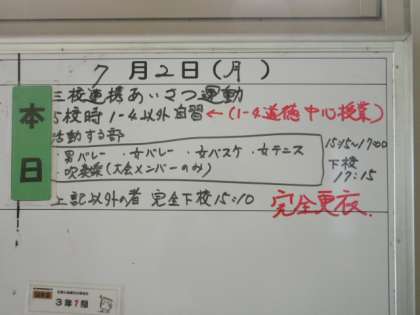 7月2日(月)
本日
三校連携あいさつ運動
5校時 1-4以外 自習 ← (1-4道徳 中心授業)
活動する部
・男バレー ・女バレー ・女バスケ ・女テニス
・吹奏楽(大会メンバーのみ)
15:15~17:00
下校
17:15
上記以外の者 完全下校15:10
完全更衣